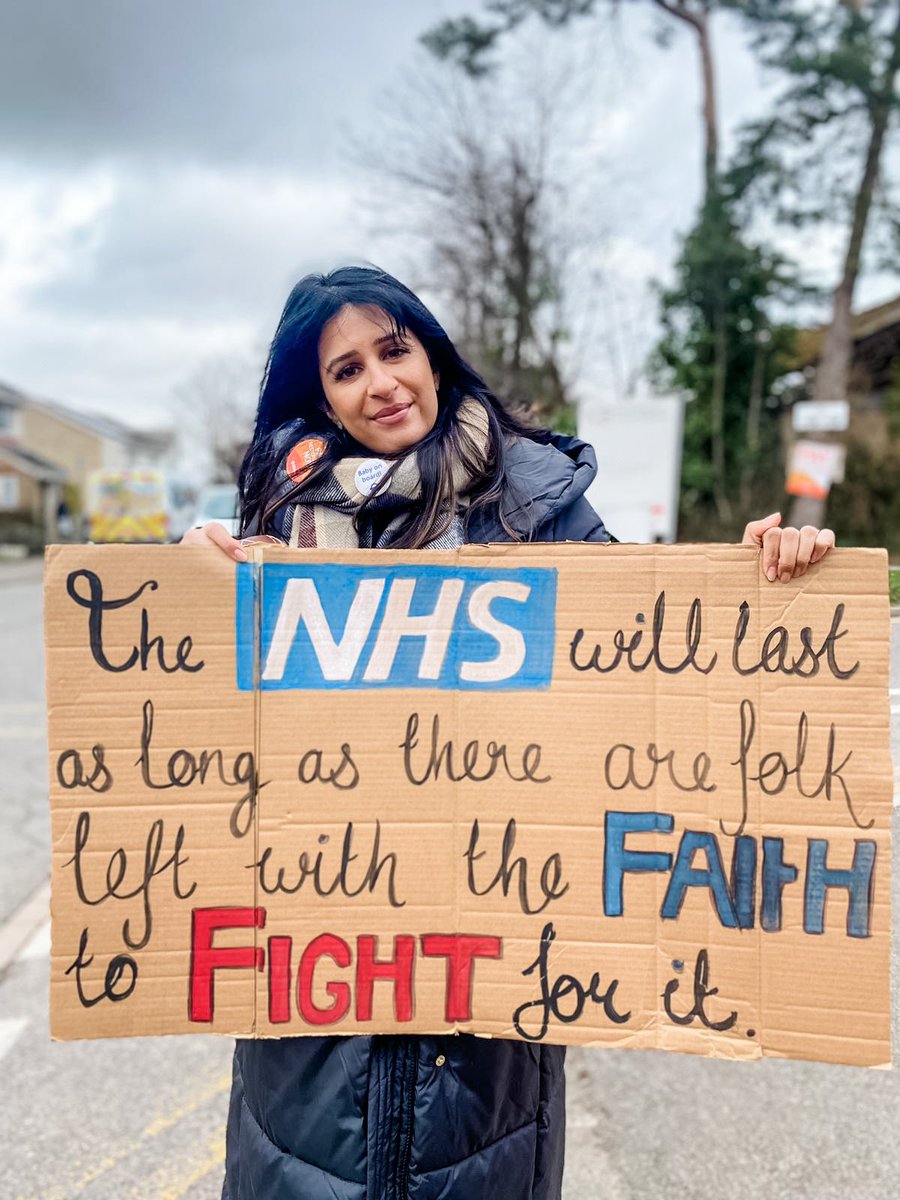 Baby on
board!
The NHS will last
as long as there are folk
left with the FAItH
to FIGHT for it.